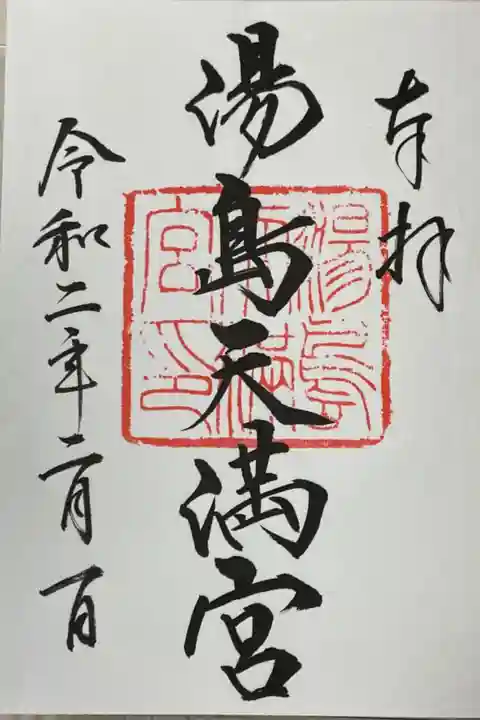 奉拝
湯島天満宮
令和二年二月一日
湯島
天満
宮印